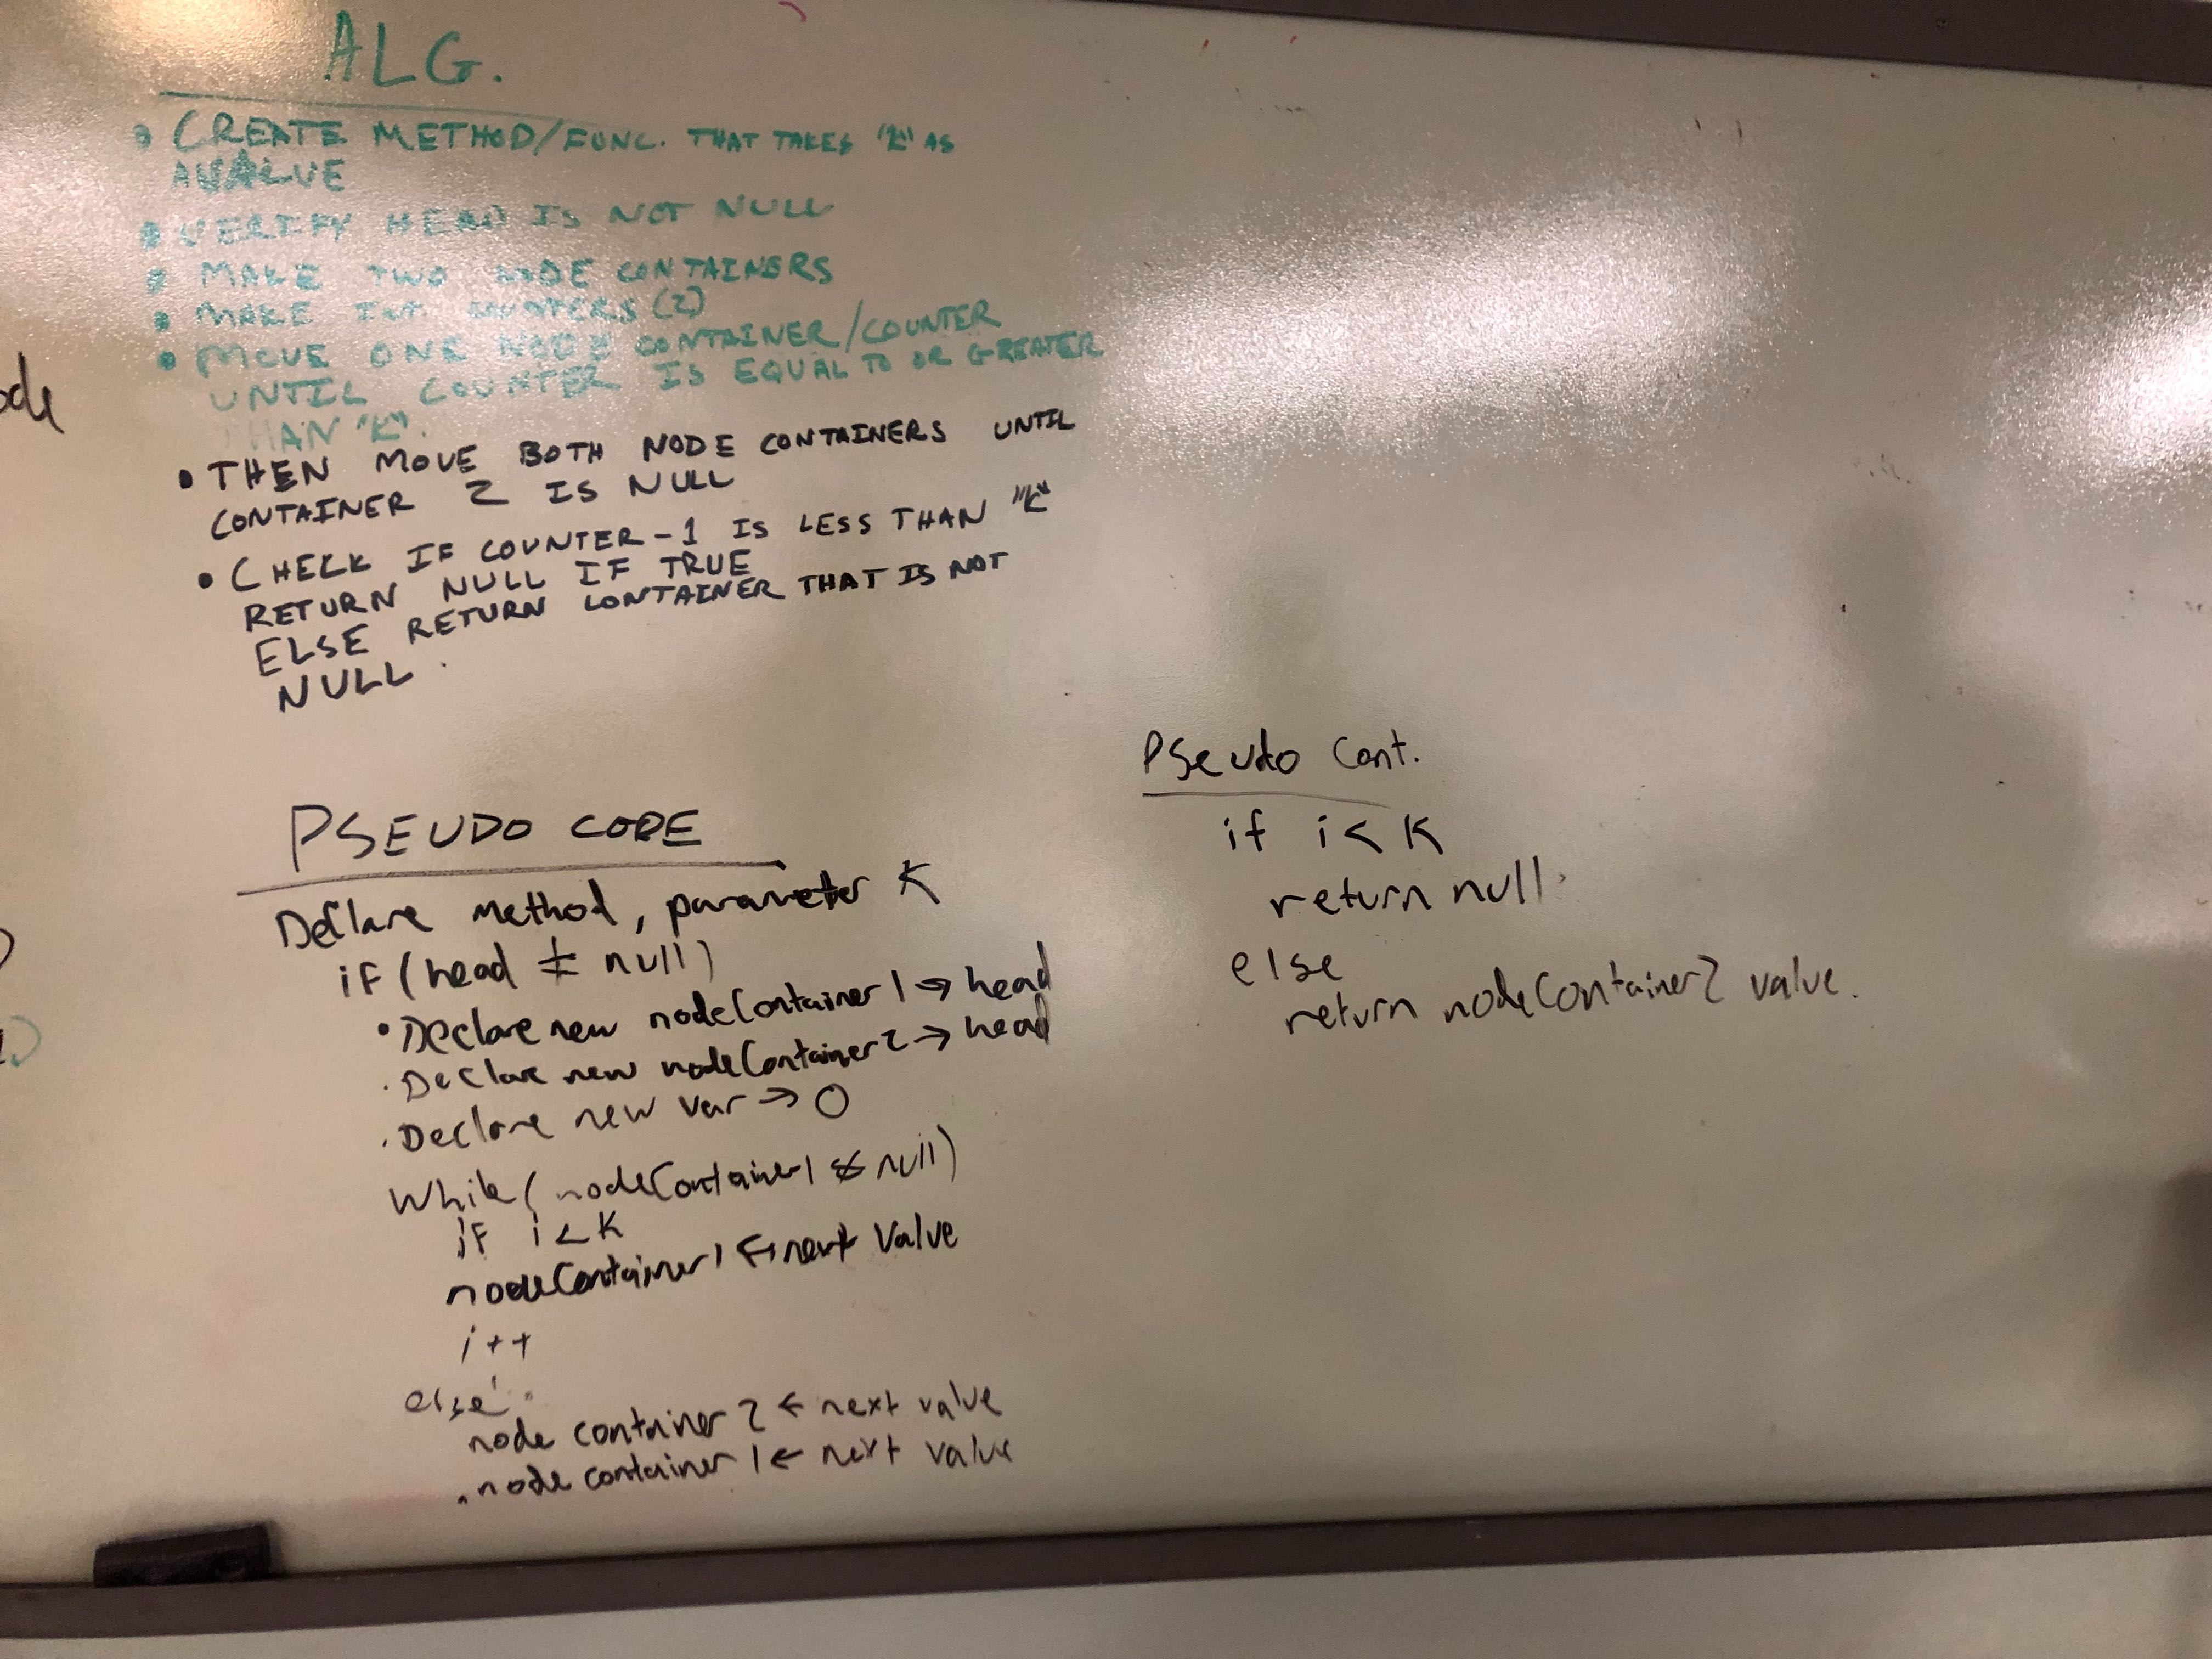 ALG.
• CREATE METHOD/FUNC. THAT TAKES "K" AS
A VALUE
• VERIFY HEAD IS NOT NULL
• MAKE TWO NODE CONTAINERS
• MAKE INT COUNTERS (2)
• MOVE ONE NODE CONTAINER/COUNTER
UNTIL COUNTER IS EQUAL TO OR GREATER
THAN "K".
• THEN MOVE BOTH NODE CONTAINERS UNTIL
CONTAINER 2 IS NULL
• CHECK IF COUNTER-1 IS LESS THAN "K"
RETURN NULL IF TRUE
ELSE RETURN CONTAINER THAT IS NOT
NULL.
ode
PSEUDO CODE
Declare method, parameter K
if (head ≠ null)
• Declare new nodeContainer1 → head
• Declare new nodeContainer2 → head
• Declare new var → 0
While (nodeContainer1 ≠ null)
if i < K
nodeContainer1 ← next value
i++
else
node container 2 ← next value
• node container 1 ← next value
Pseudo Cont.
if i < K
return null
else
return nodeContainer2 value.